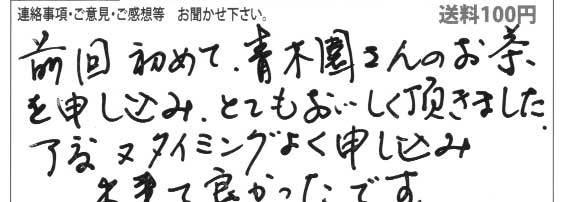 連絡事項・ご意見・ご感想等 お聞かせ下さい。 送料100円
前回 初めて、青木園さんのお茶
を申し込み、とてもおいしく頂きました。
又タイミングよく申し込み
出来て良かったです